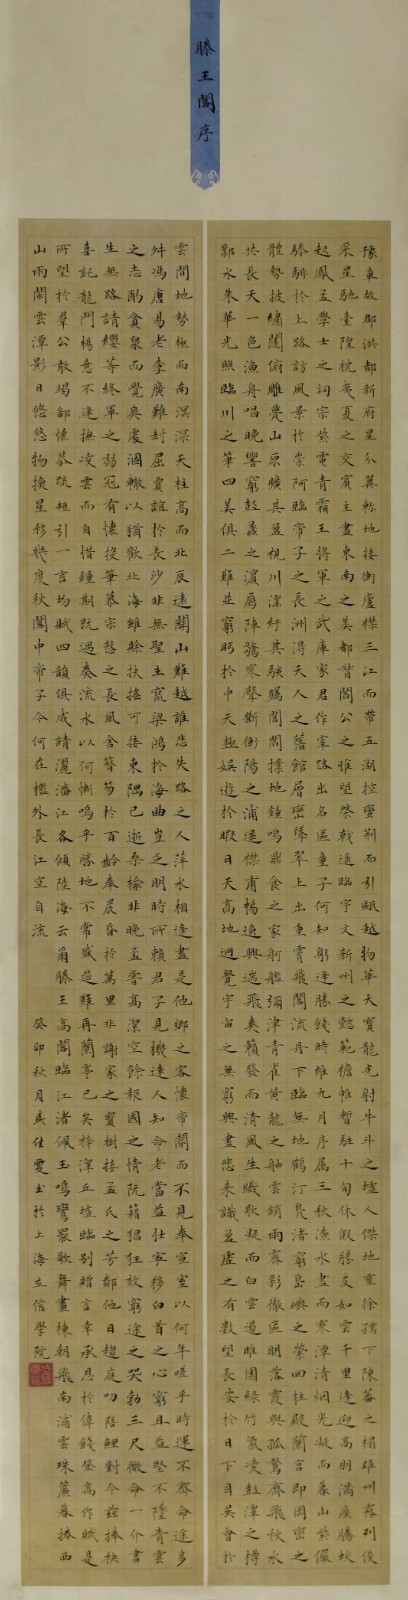 滕王閣序
豫章故郡洪都新府星分翼軫地接衡廬襟三江而帶五湖控蠻荊而引甌越物華天寶龍光射牛斗之墟人傑地靈徐孺下陳蕃之榻雄州霧列俊
采星馳臺隍枕夷夏之交賓主盡東南之美都督閻公之雅望棨戟遙臨宇文新州之懿範襜帷暫駐十旬休假勝友如雲千里逢迎高朋滿座騰蛟
起鳳孟學士之詞宗紫電青霜王將軍之武庫家君作宰路出名區童子何知躬逢勝餞時維九月序屬三秋潦水盡而寒潭清煙光凝而暮山紫儼
驂騑於上路訪風景於崇阿臨帝子之長洲得天人之舊館層巒聳翠上出重霄飛閣流丹下臨無地鶴汀鳧渚窮島嶼之縈回桂殿蘭宮即岡巒之
體勢披繡闥俯雕甍山原曠其盈視川澤紆其駭矚閭閻撲地鐘鳴鼎食之家舸艦彌津青雀黃龍之舳雲銷雨霽彩徹區明落霞與孤鶩齊飛秋水
共長天一色漁舟唱晚響窮彭蠡之濱雁陣驚寒聲斷衡陽之浦遙襟甫暢逸興遄飛爽籟發而清風生纖歌凝而白雲遏睢園綠竹氣凌彭澤之樽
鄴水朱華光照臨川之筆四美俱二難並窮眄於中天極娛遊於暇日天高地迥覺宇宙之無窮興盡悲來識盈虛之有數望長安於日下目吳會於
雲間地勢極而南溟深天柱高而北辰遠關山難越誰悲失路之人萍水相逢盡是他鄉之客懷帝閽而不見奉宣室以何年嗟乎時運不齊命途多
舛馮唐易老李廣難封屈賈誼於長沙非無聖主竄梁鴻於海曲豈乏明時所賴君子見機達人知命老當益壯寧移白首之心窮且益堅不墜青雲
之志酌貪泉而覺爽處涸轍以猶歡北海雖賒扶搖可接東隅已逝桑榆非晚孟嘗高潔空餘報國之情阮籍猖狂效窮途之哭勃三尺微命一介書
生無路請纓等終軍之弱冠有懷投筆慕宗愨之長風舍簪笏於百齡奉晨昏於萬里非謝家之寶樹接孟氏之芳鄰他日趨庭叨陪鯉對今茲捧袂
喜託龍門楊意不逢撫凌雲而自惜鍾期既遇奏流水以何慚嗚乎勝地不常盛筵難再蘭亭已矣梓澤丘墟臨別贈言幸承恩於偉餞登高作賦是
所望於羣公敢竭鄙懷恭疏短引一言均賦四韻俱成請灑潘江各傾陸海云爾滕王高閣臨江渚佩玉鳴鸞罷歌舞畫棟朝飛南浦雲珠簾暮捲西
山雨閒雲潭影日悠悠物換星移幾度秋閣中帝子今何在檻外長江空自流 癸卯秋月佳雯書於上海立信學院